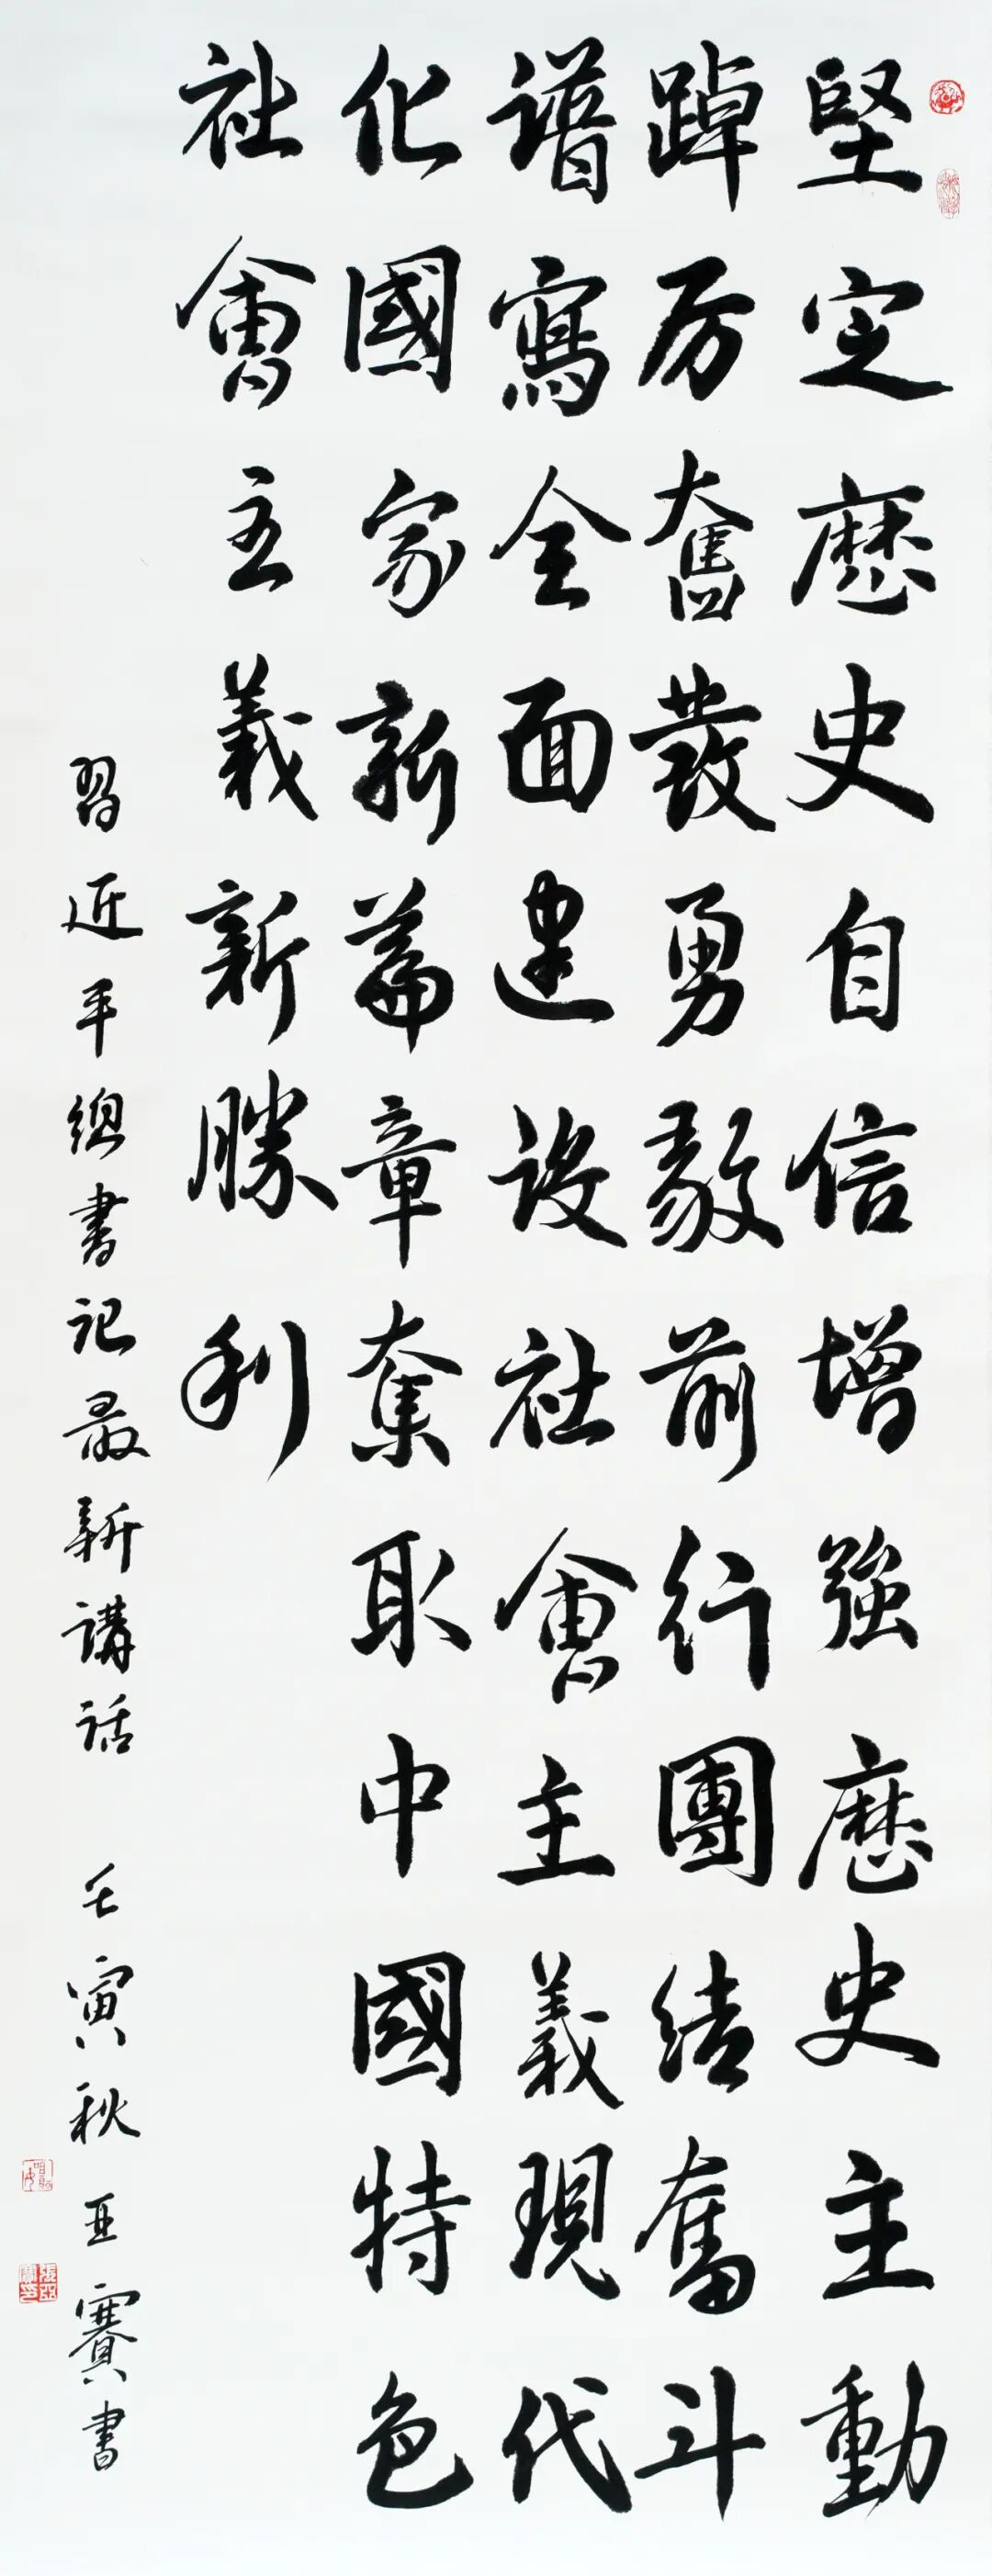 堅定歷史自信增強歷史主動
踔厉奮發勇毅前行團結奮斗
谱寫全面建设社會主義現代
化國家新篇章奪取中國特色
社會主義新勝利
習近平總書記最新講話 壬寅秋 亚賽書